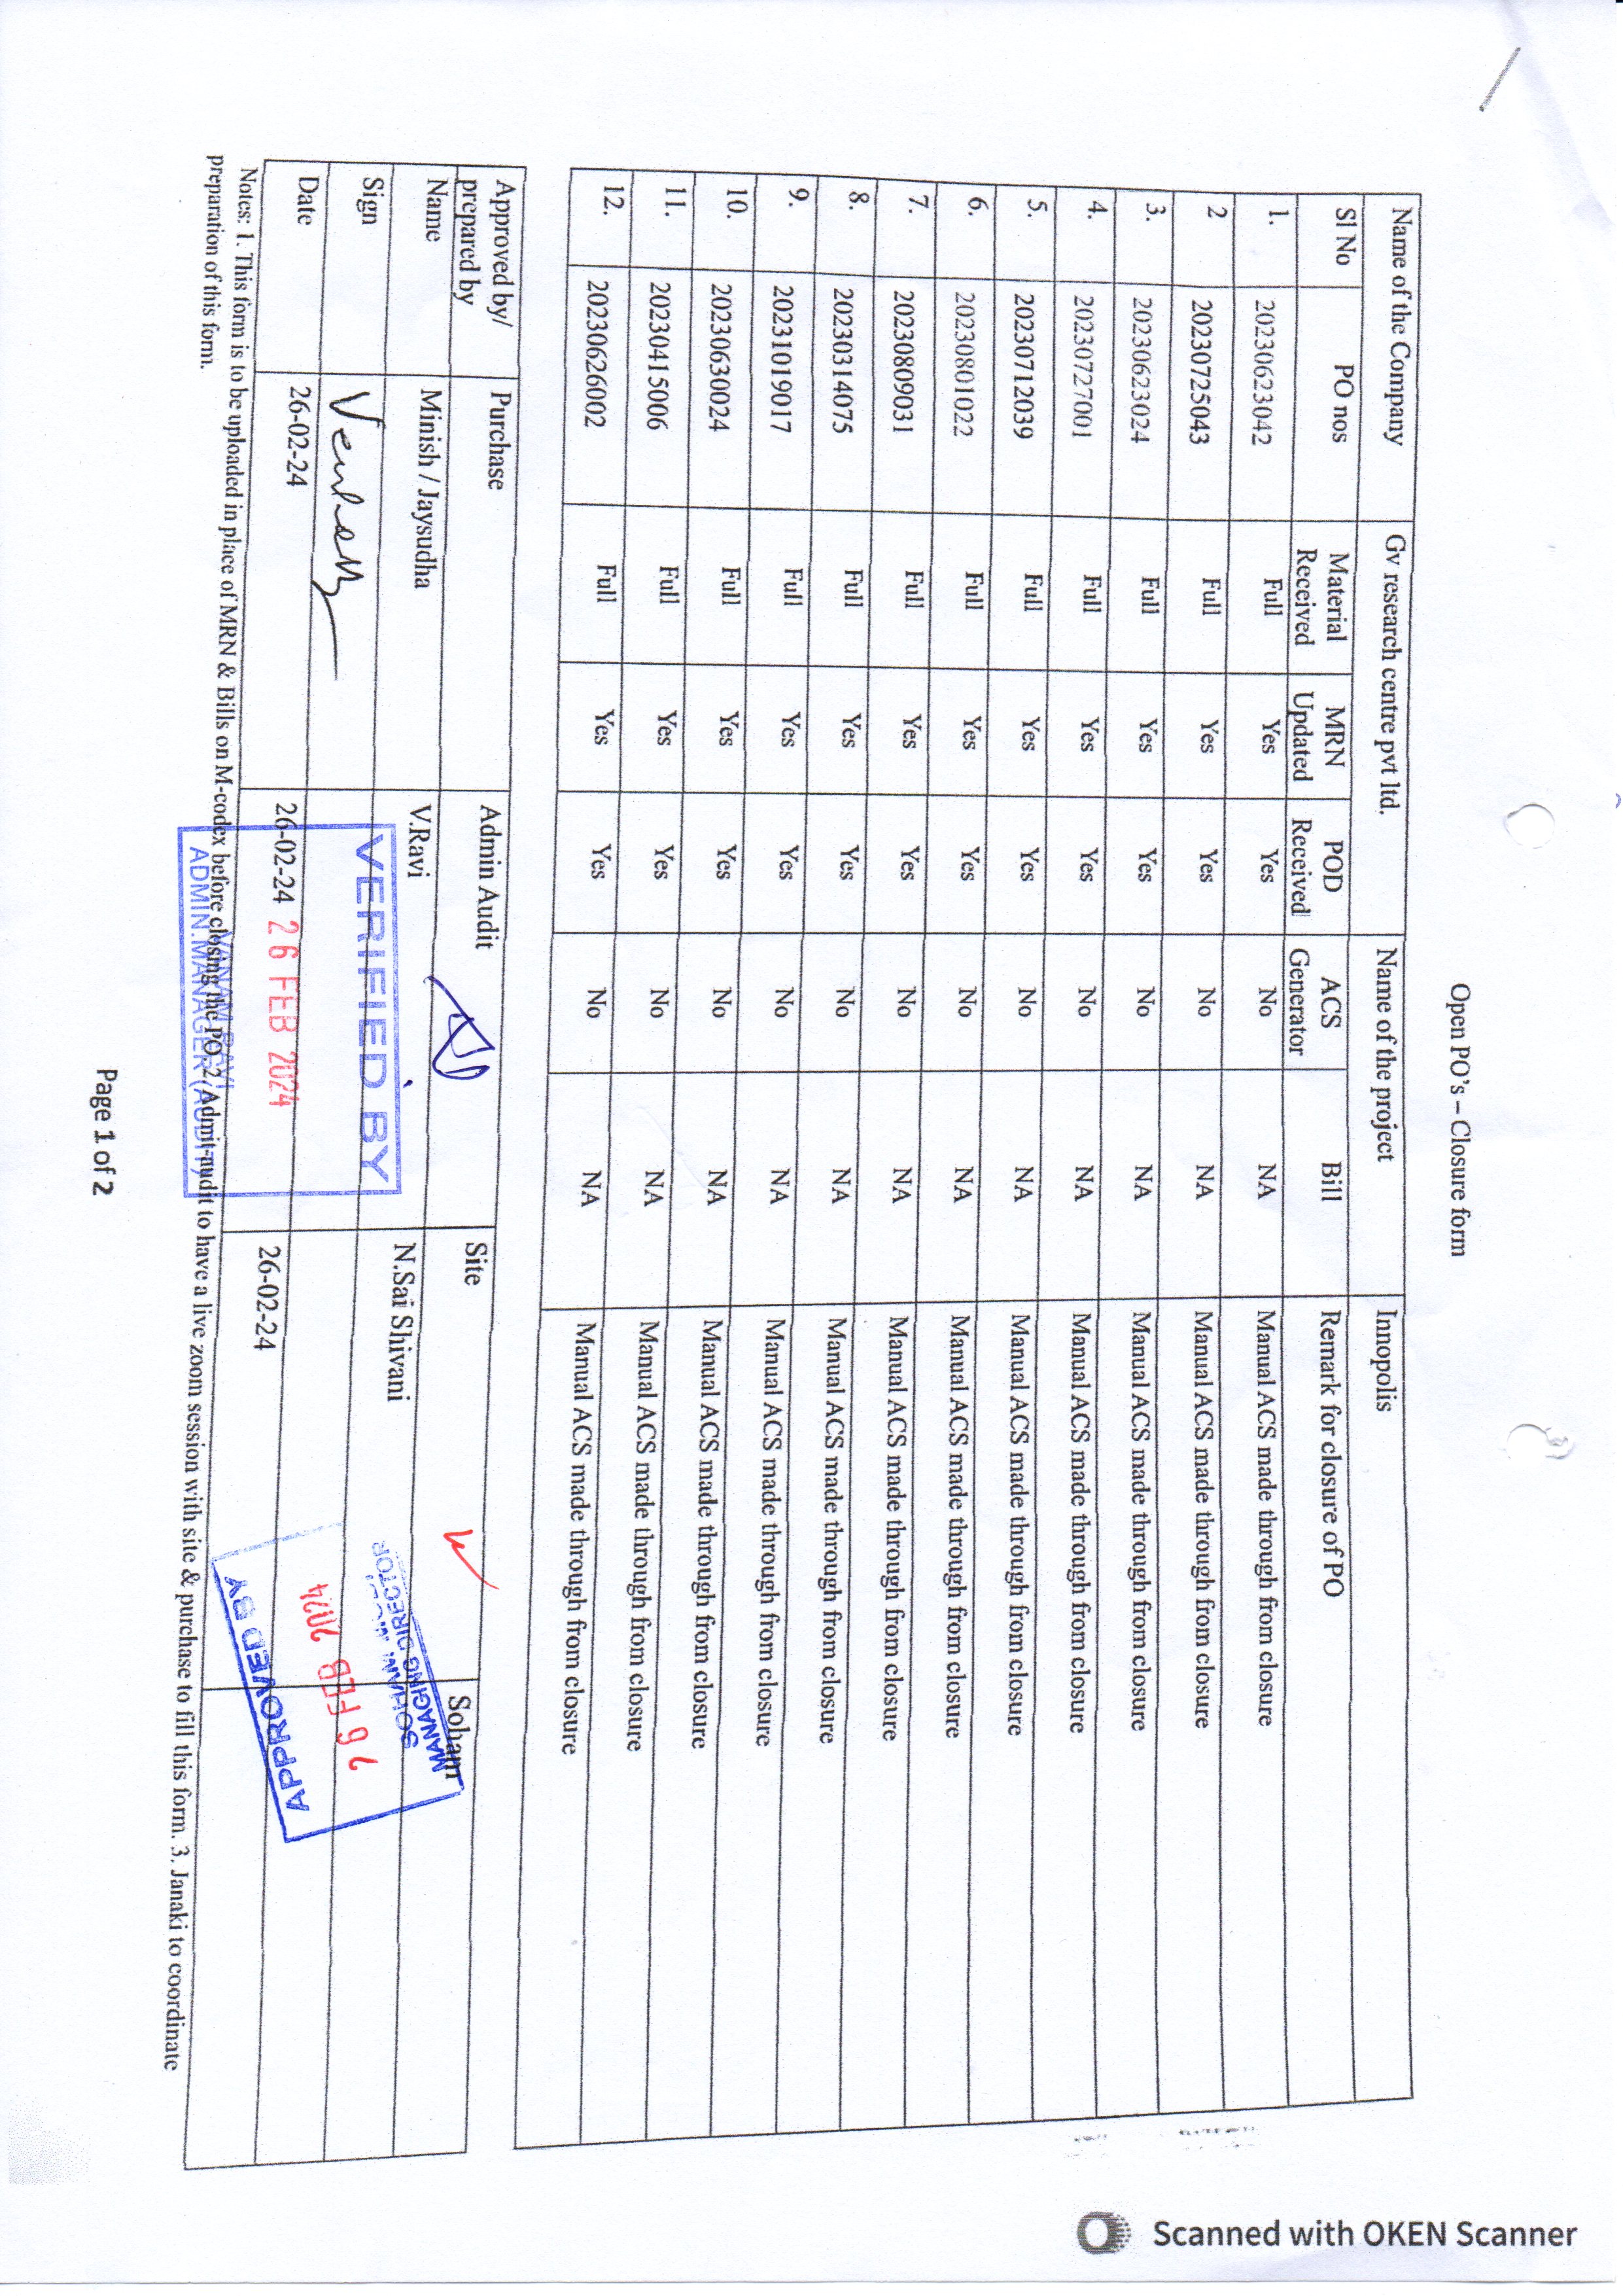 Open PO's – Closure form
Name of the Company Gv research centre pvt ltd. Name of the project Innopolis
Sl No PO nos Material Received MRN Updated POD Received ACS Generator Bill Remark for closure of PO
1. 20230623042 Full Yes Yes No NA Manual ACS made through from closure
2 20230725043 Full Yes Yes No NA Manual ACS made through from closure
3. 20230623024 Full Yes Yes No NA Manual ACS made through from closure
4. 20230727001 Full Yes Yes No NA Manual ACS made through from closure
5. 20230712039 Full Yes Yes No NA Manual ACS made through from closure
6. 20230801022 Full Yes Yes No NA Manual ACS made through from closure
7. 20230809031 Full Yes Yes No NA Manual ACS made through from closure
8. 20230314075 Full Yes Yes No NA Manual ACS made through from closure
9. 20231019017 Full Yes Yes No NA Manual ACS made through from closure
10. 20230630024 Full Yes Yes No NA Manual ACS made through from closure
11. 20230415006 Full Yes Yes No NA Manual ACS made through from closure
12. 20230626002 Full Yes Yes No NA Manual ACS made through from closure
Approved by/ prepared by Purchase Admin Audit Site Soham
Name Minish / Jaysudha V.Ravi N.Sai Shivani
Sign
Date 26-02-24 26-02-24 26-02-24
VERIFIED BY
26 FEB 2024
ADMIN.MANAGER (AUDIT)
APPROVED BY
26 FEB 2024
SOHAM
MANAGING DIRECTOR
Notes: 1. This form is to be uploaded in place of MRN & Bills on M-codex before closing the PO 2. Admit-audit to have a live zoom session with site & purchase to fill this form. 3. Janaki to coordinate
preparation of this form.
Page 1 of 2
Scanned with OKEN Scanner